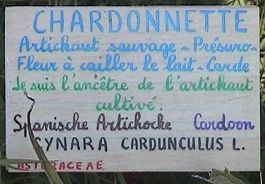 CHARDONNETTE
Artichaut sauvage - Présure -
Fleur à cailler le lait - Carde
Je suis l'ancêtre de l'artichaut
cultivé.
Spanische Artichocke Cardoon
CYNARA CARDUNCULUS L.
ASTERACEAE